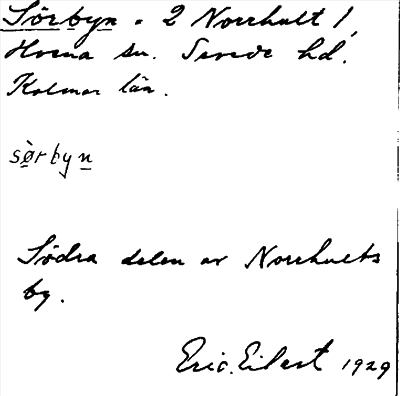 Sörbyn. 2 Norrhult 1,
Hvena sn. Sevede hd.
Kalmar län.
sörbyn
Södra delen av Norrhults
by.
Eric. Eilert 1929